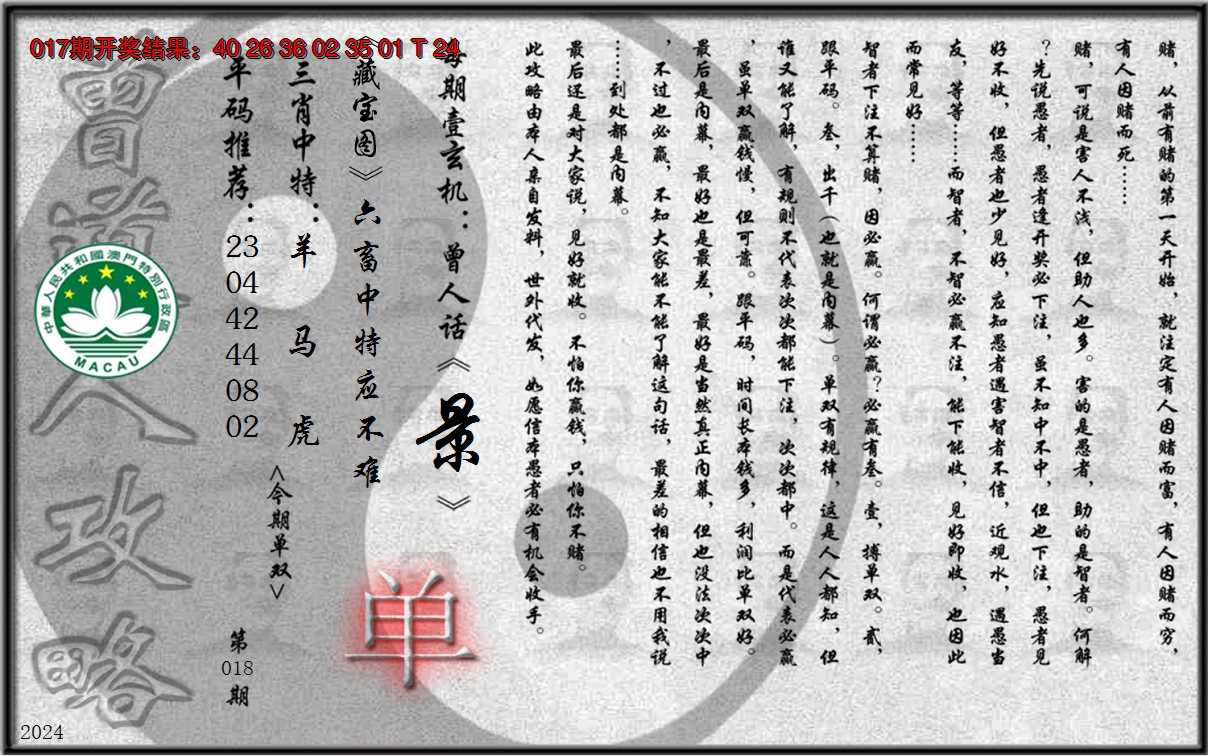 017期开奖结果：40 26 36 02 35 01 T 24
赌，从前有赌的第一天开始，就注定有人因赌而富，有人因赌而穷，
有人因赌而死……
赌，可说是害人不浅，但助人也多。害的是愚者，助的是智者。何解
？先说愚者，愚者逢开奖必下注，虽不知中不中，但也下注，愚者见
好不收，但愚者也少见好，应知愚者遇害智者不信，近观水，遇愚当
友，等等……而智者，不智必赢不注，能下能收，见好即收，也因此
而常见好……
智者下注不算赌，因必赢。何谓必赢？必赢有叁。壹，搏单双。贰，
跟平码。叁，出千（也就是内幕）。单双有规律，这是人人都知，但
谁又能了解，有规则不代表次次都能下注，次次都中。而是代表必赢
，虽单双赢钱慢，但可靠。跟平码，时间长本钱多，利润比单双好。
最后是内幕，最好也是最差，最好是当然真正内幕，但也没法次次中
，不过也必赢，不知大家能不能了解这句话，最差的相信也不用我说
……到处都是内幕。
最后还是对大家说，见好就收。不怕你赢钱，只怕你不赌。
此攻略由本人亲自发料，世外代发，如愿信本愚者必有机会收手。
每期壹玄机：曾人话《景》
《藏宝图》六畜中特应不难
三肖中特：羊 马 虎
<今期单双>
单
平码推荐：23 04 42 44 08 02
第018期
曾道人攻略
中華人民共和國澳門特別行政區
MACAU
2024